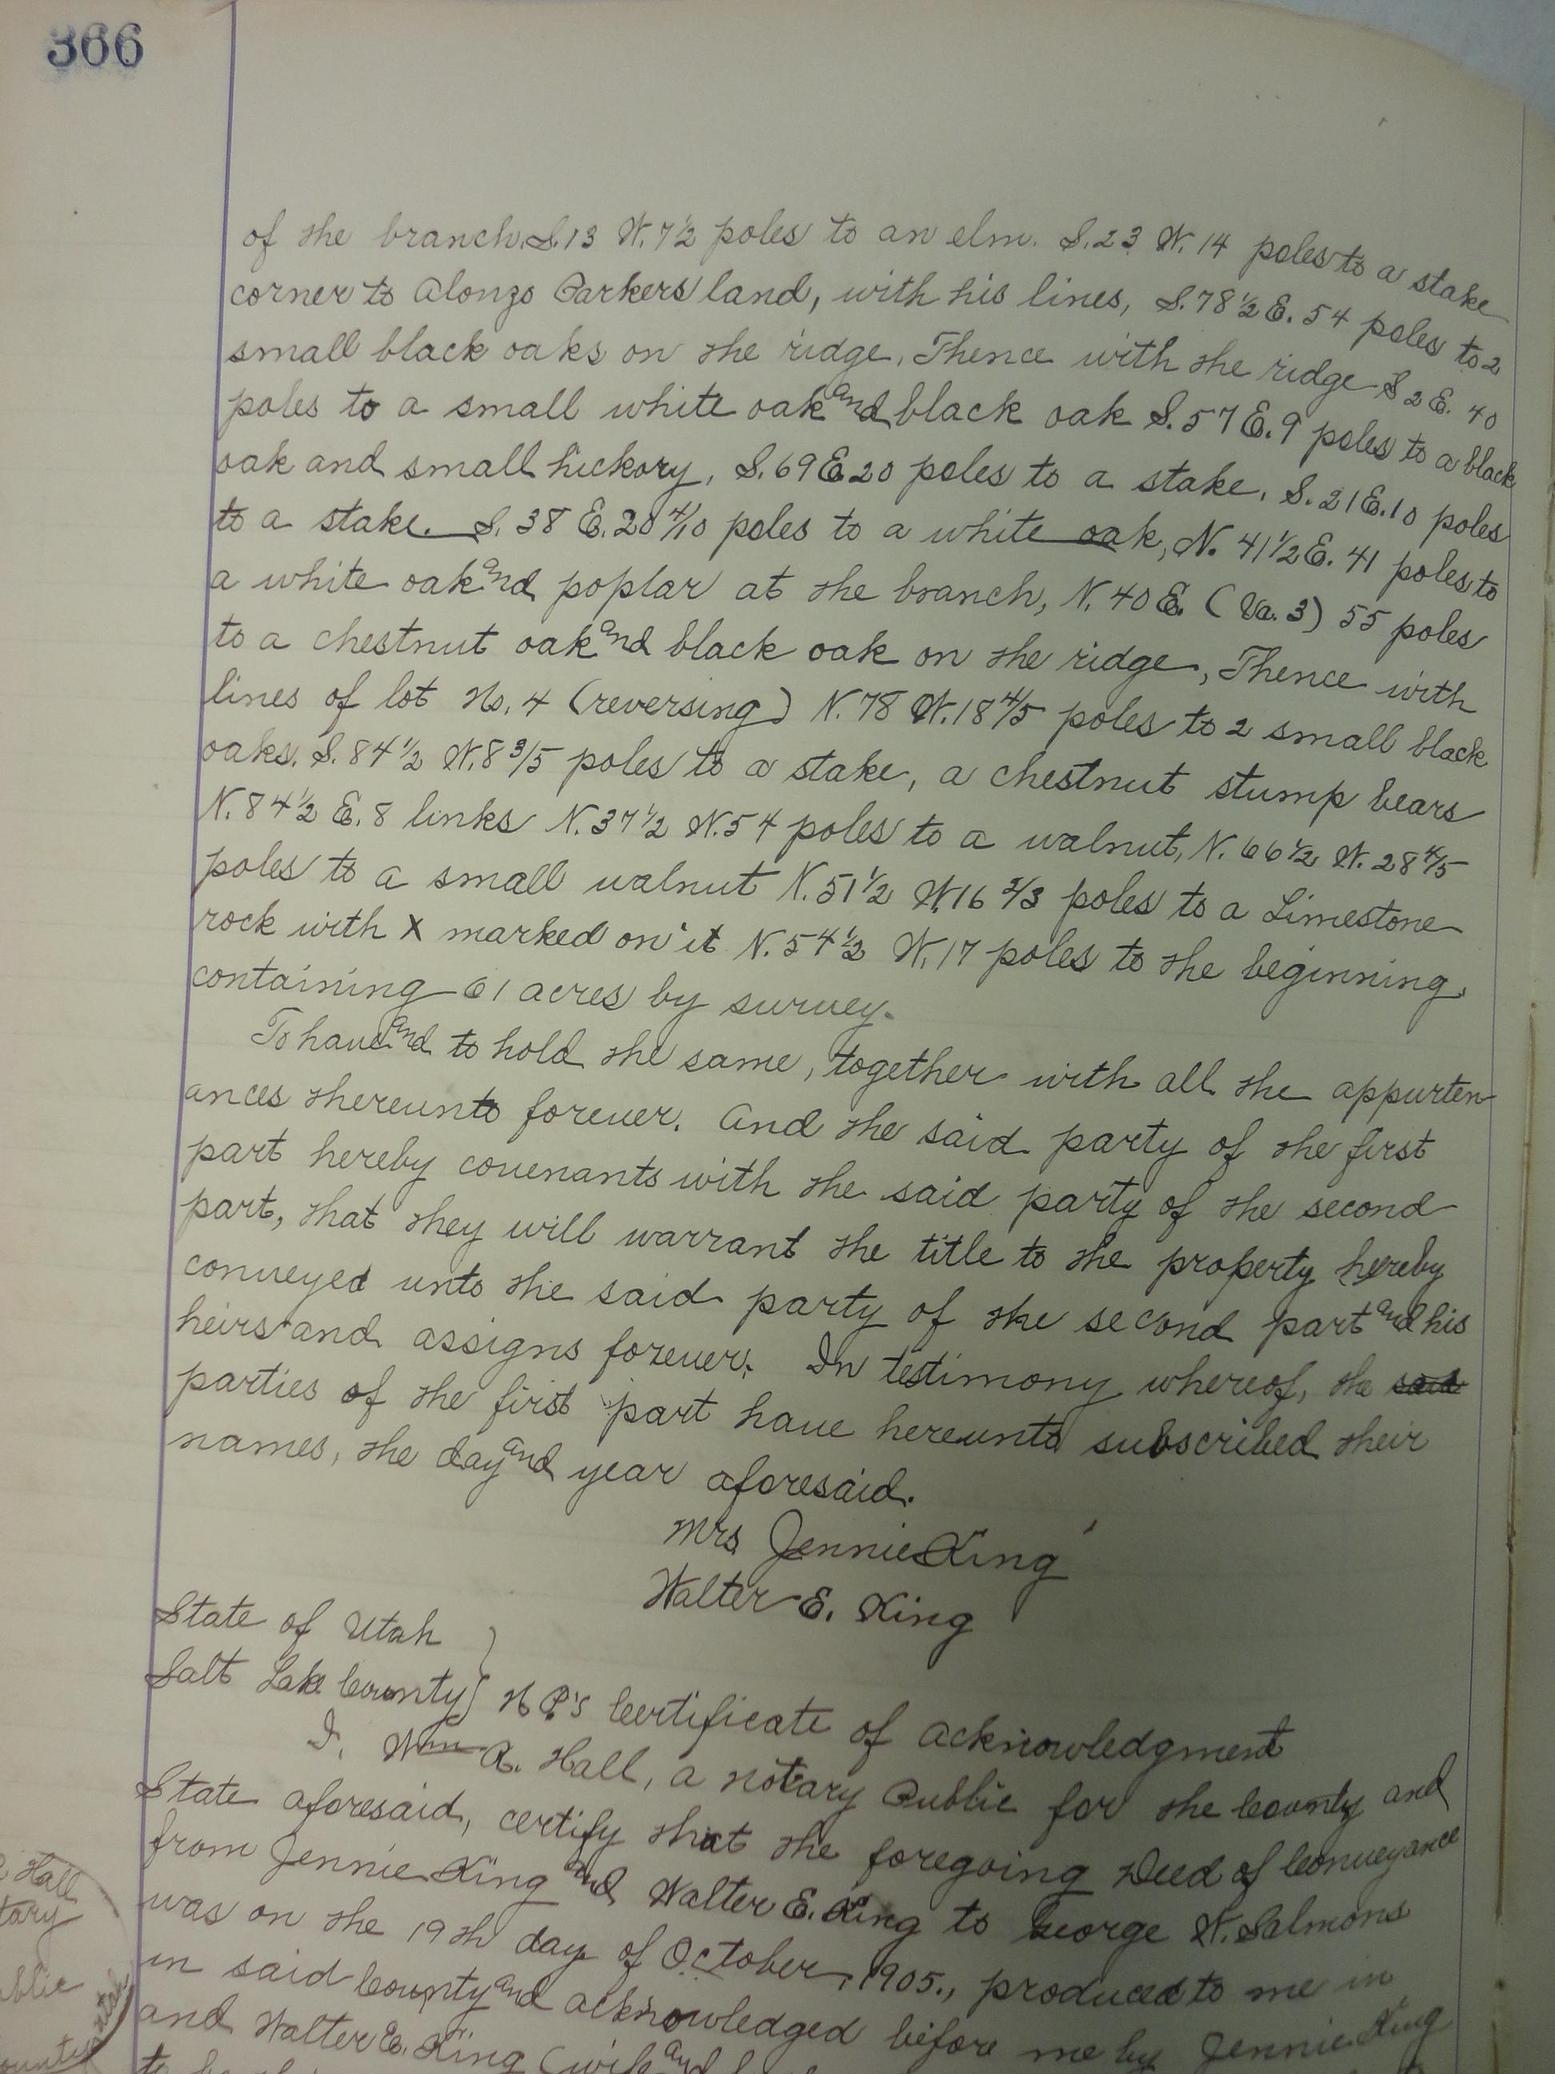 366
of the branch. S. 13 W. 7 1/2 poles to an elm. S. 23 W. 14 poles to a stake
corner to Alonzo Parkers land, with his lines, S. 78 1/2 E. 54 poles to 2
small black oaks on the ridge, Thence with the ridge S 2 E. 40
poles to a small white oak and black oak S. 57 E. 9 poles to a black
oak and small hickory, S. 69 E 20 poles to a stake, S. 21 E. 10 poles
to a stake. S. 38 E. 20 4/10 poles to a white oak, N. 41 1/2 E. 41 poles to
a white oak and poplar at the branch, N. 40 E. (Va. 3) 55 poles
to a chestnut oak and black oak on the ridge, Thence with
lines of lot No. 4 (reversing) N. 78 W. 18 4/5 poles to 2 small black
oaks. S. 84 1/2 W. 8 3/5 poles to a stake, a chestnut stump bears
N. 84 1/2 E. 8 links N. 37 1/2 W. 54 poles to a walnut, N. 66 1/2 W. 28 4/5
poles to a small walnut N. 51 1/2 W. 16 2/3 poles to a Limestone
rock with X marked on it N. 54 1/2 W. 17 poles to the beginning,
containing 61 acres by survey.
To have and to hold the same, together with all the appurten
ances thereunto forever. And the said party of the first
part hereby covenants with the said party of the second
part, that they will warrant the title to the property hereby
conveyed unto the said party of the second part and his
heirs and assigns forever. In testimony whereof, the said
parties of the first part have hereunto subscribed their
names, the day and year aforesaid.
Mrs Jennie King
Walter E. King
State of Utah
Salt Lake County } N P's Certificate of acknowledgment
I, Wm R. Hall, a notary Public for the County and
State aforesaid, certify that the foregoing Deed of Conveyance
from Jennie King and Walter E. King to George W. Salmons
was on the 19th day of October, 1905., produced to me in
in said County and acknowledged before me by Jennie King
and Walter E. King (wife and
to be
Hall
tary
ublic